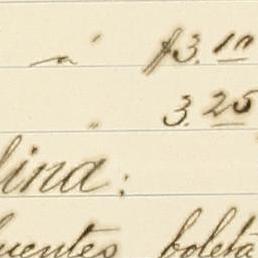 " $3.10
" 3.25
lina:
uentes boleta